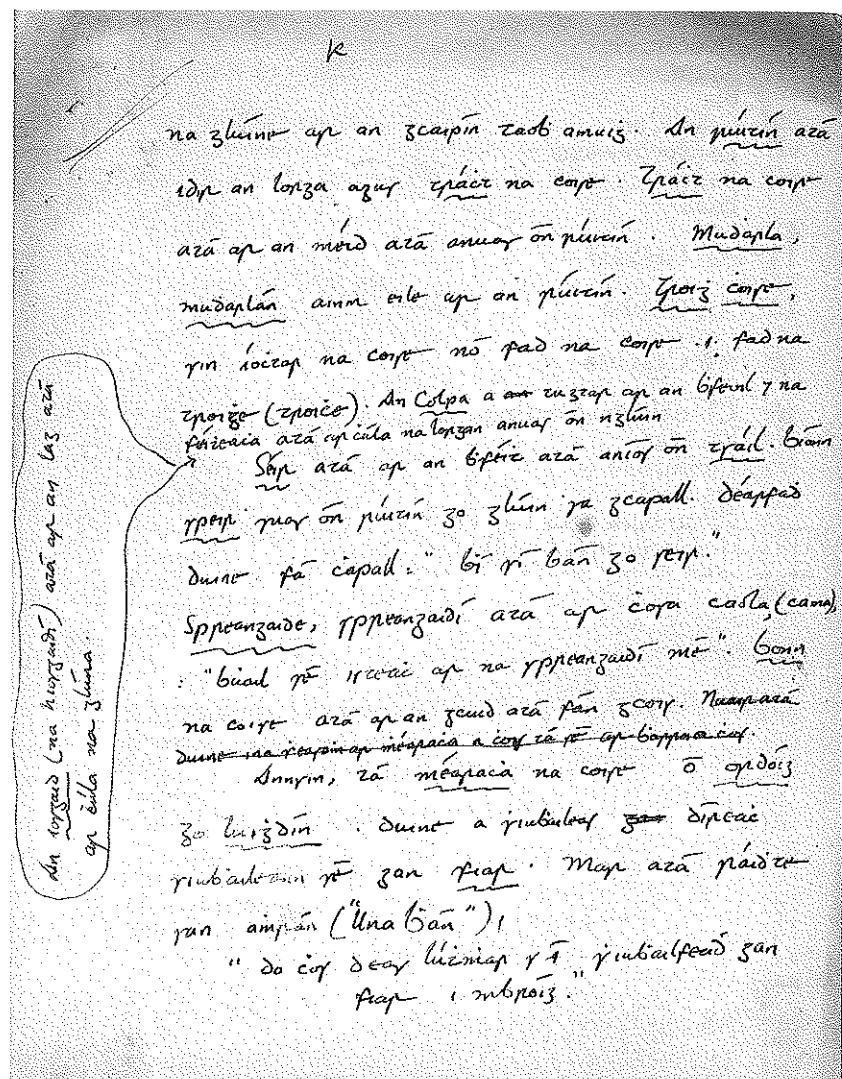 K
na glúine ar an gcaipín taobh amuigh. An rúitín atá
idir an lorga agus tráċt na coise. Tráċt na coise
atá ar an méid atá anuas ón rúitín. Mudarla,
mudarlán ainm eile ar an rúitín. Troiġ ċoise,
sin íoċtar na coise nó fad na coise .i. fad na
troiġe (troiċe). An Colpa a tugtar ar an ḃfeoil ⁊ na
féiṫeaċa atá ar ċúla na lorgan anuas ón nglúin
Seir atá ar an ḃféiṫ atá aníos ón tsáil. Bíonn
speir suas ón rúitín go glúin sa gcapall. Déarfad
duine fá ċapall: "bí sí bán go seir."
Spreangaide, spreangaidí atá ar ċosa caola, (cama),
: "ḃuail sé isteaċ ar na spreangaidí mé". Bonn
na coise atá ar an gcuid atá fán gcois. Nuair atá
duine ina ṡeasaṁ ar ṁéaraċa a ċos tá sé ar barraa cos.
Annsin, tá méaraċa na coise ó ordóig
go luiġdín. Duine a siuḃaileas díreaċ
siuḃaileann sé gan fiar. Mar atá ráidte
san aṁrán ("Una Ḃán"),
"do ċos deas lúṫṁar s í ṡiuḃailfeaḋ gan
fiar i mbróig."
An iosgaid (na hiosgaidí) atá ar an lag atá
ar ċúla na glúna.